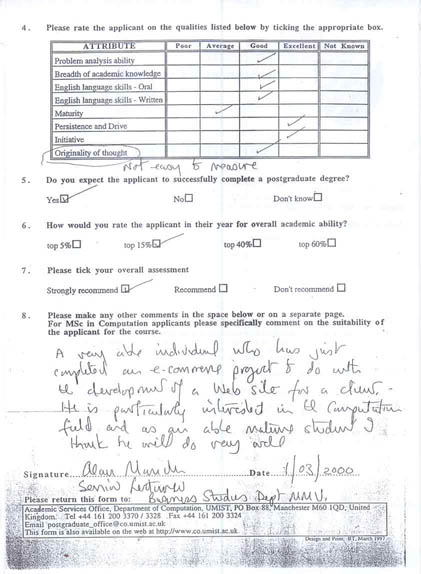 4. Please rate the applicant on the qualities listed below by ticking the appropriate box.
ATTRIBUTE Poor Average Good Excellent Not Known
Problem analysis ability
Breadth of academic knowledge
English language skills - Oral
English language skills - Written
Maturity
Persistence and Drive
Initiative
Originality of thought
Not easy to measure
5. Do you expect the applicant to successfully complete a postgraduate degree?
Yes No Don't know
6. How would you rate the applicant in their year for overall academic ability?
top 5% top 15% top 40% top 60%
7. Please tick your overall assessment
Strongly recommend Recommend Don't recommend
8. Please make any other comments in the space below or on a separate page.
For MSc in Computation applicants please specifically comment on the suitability of
the applicant for the course.
A very able individual who has just
completed an e-commerce project to do with
the development of a Web site for a client.
He is particularly interested in the Computation
field and as an able mature student I
think he will do very well
Signature Date 1/03/2000
Senior Lecturer
Please return this form to: Business Studies Dept MMU.
Academic Services Office, Department of Computation, UMIST, PO Box 88, Manchester M60 1QD, United
Kingdom. Tel +44 161 200 3370 / 3328 Fax +44 161 200 3324
Email postgraduate_office@co.umist.ac.uk
This form is also available on the web at http://www.co.umist.ac.uk
Design and Print, BT, March 1997